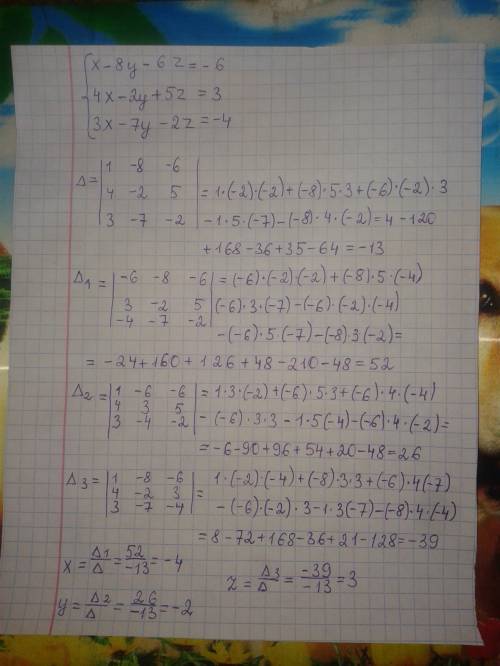 x-8y-6z=-6
4x-2y+5z=3
3x-7y-2z=-4
Δ= |1 -8 -6|
|4 -2 5| =1·(-2)·(-2)+(-8)·5·3+(-6)·(-2)·3
|3 -7 -2| -1·5·(-7)-(-8)·4·(-2)=4-120
+168-36+35-64=-13
Δ1= |-6 -8 -6| =(-6)·(-2)·(-2)+(-8)·5·(-4)
|3 -2 5| (-6)·3·(-7)-(-6)·(-2)·(-4)
|-4 -7 -2| -(-6)·5·(-7)-(-8)3(-2)=
=-24+160+126+48-210-48=52
Δ2= |1 -6 -6| =1·3·(-2)+(-6)·5·3+(-6)·4·(-4)
|4 3 5| -(-6)·3·3-1·5(-4)-(-6)·4·(-2)=
|3 -4 -2|
=-6-90+96+54+20-48=26
Δ3= |1 -8 -6| 1·(-2)(-4)+(-8)·3·3+(-6)·4(-7)
|4 -2 3| =
|3 -7 -4| -(-6)·(-2)·3-1·3(-7)-(-8)·4·(-4)
=8-72+168-36+21-128=-39
x=Δ1/Δ=52/-13=-4
z=Δ3/Δ=-39/-13=3
y=Δ2/Δ=26/-13=-2